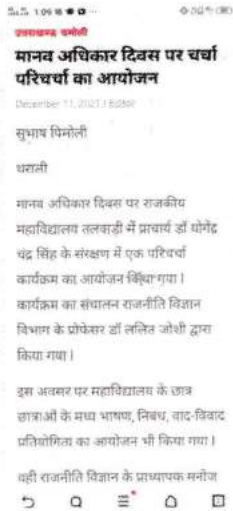 1:09
उत्तराखण्ड चमोली
मानव अधिकार दिवस पर चर्चा
परिचर्चा का आयोजन
December 11, 2021 / Editor
सुभाष पिमोली
थराली
मानव अधिकार दिवस पर राजकीय
महाविद्यालय तलवाड़ी में प्राचार्य डॉ योगेंद्र
चंद्र सिंह के संरक्षण में एक परिचर्चा
कार्यक्रम का आयोजन किया गया l
कार्यक्रम का संचालन राजनीति विज्ञान
विभाग के प्रोफेसर डॉ ललित जोशी द्वारा
किया गया l
इस अवसर पर महाविद्यालय के छात्र
छात्राओं के मध्य भाषण, निबंध, वाद-विवाद
प्रतियोगिता का आयोजन भी किया गया l
वही राजनीति विज्ञान के प्राध्यापक मनोज